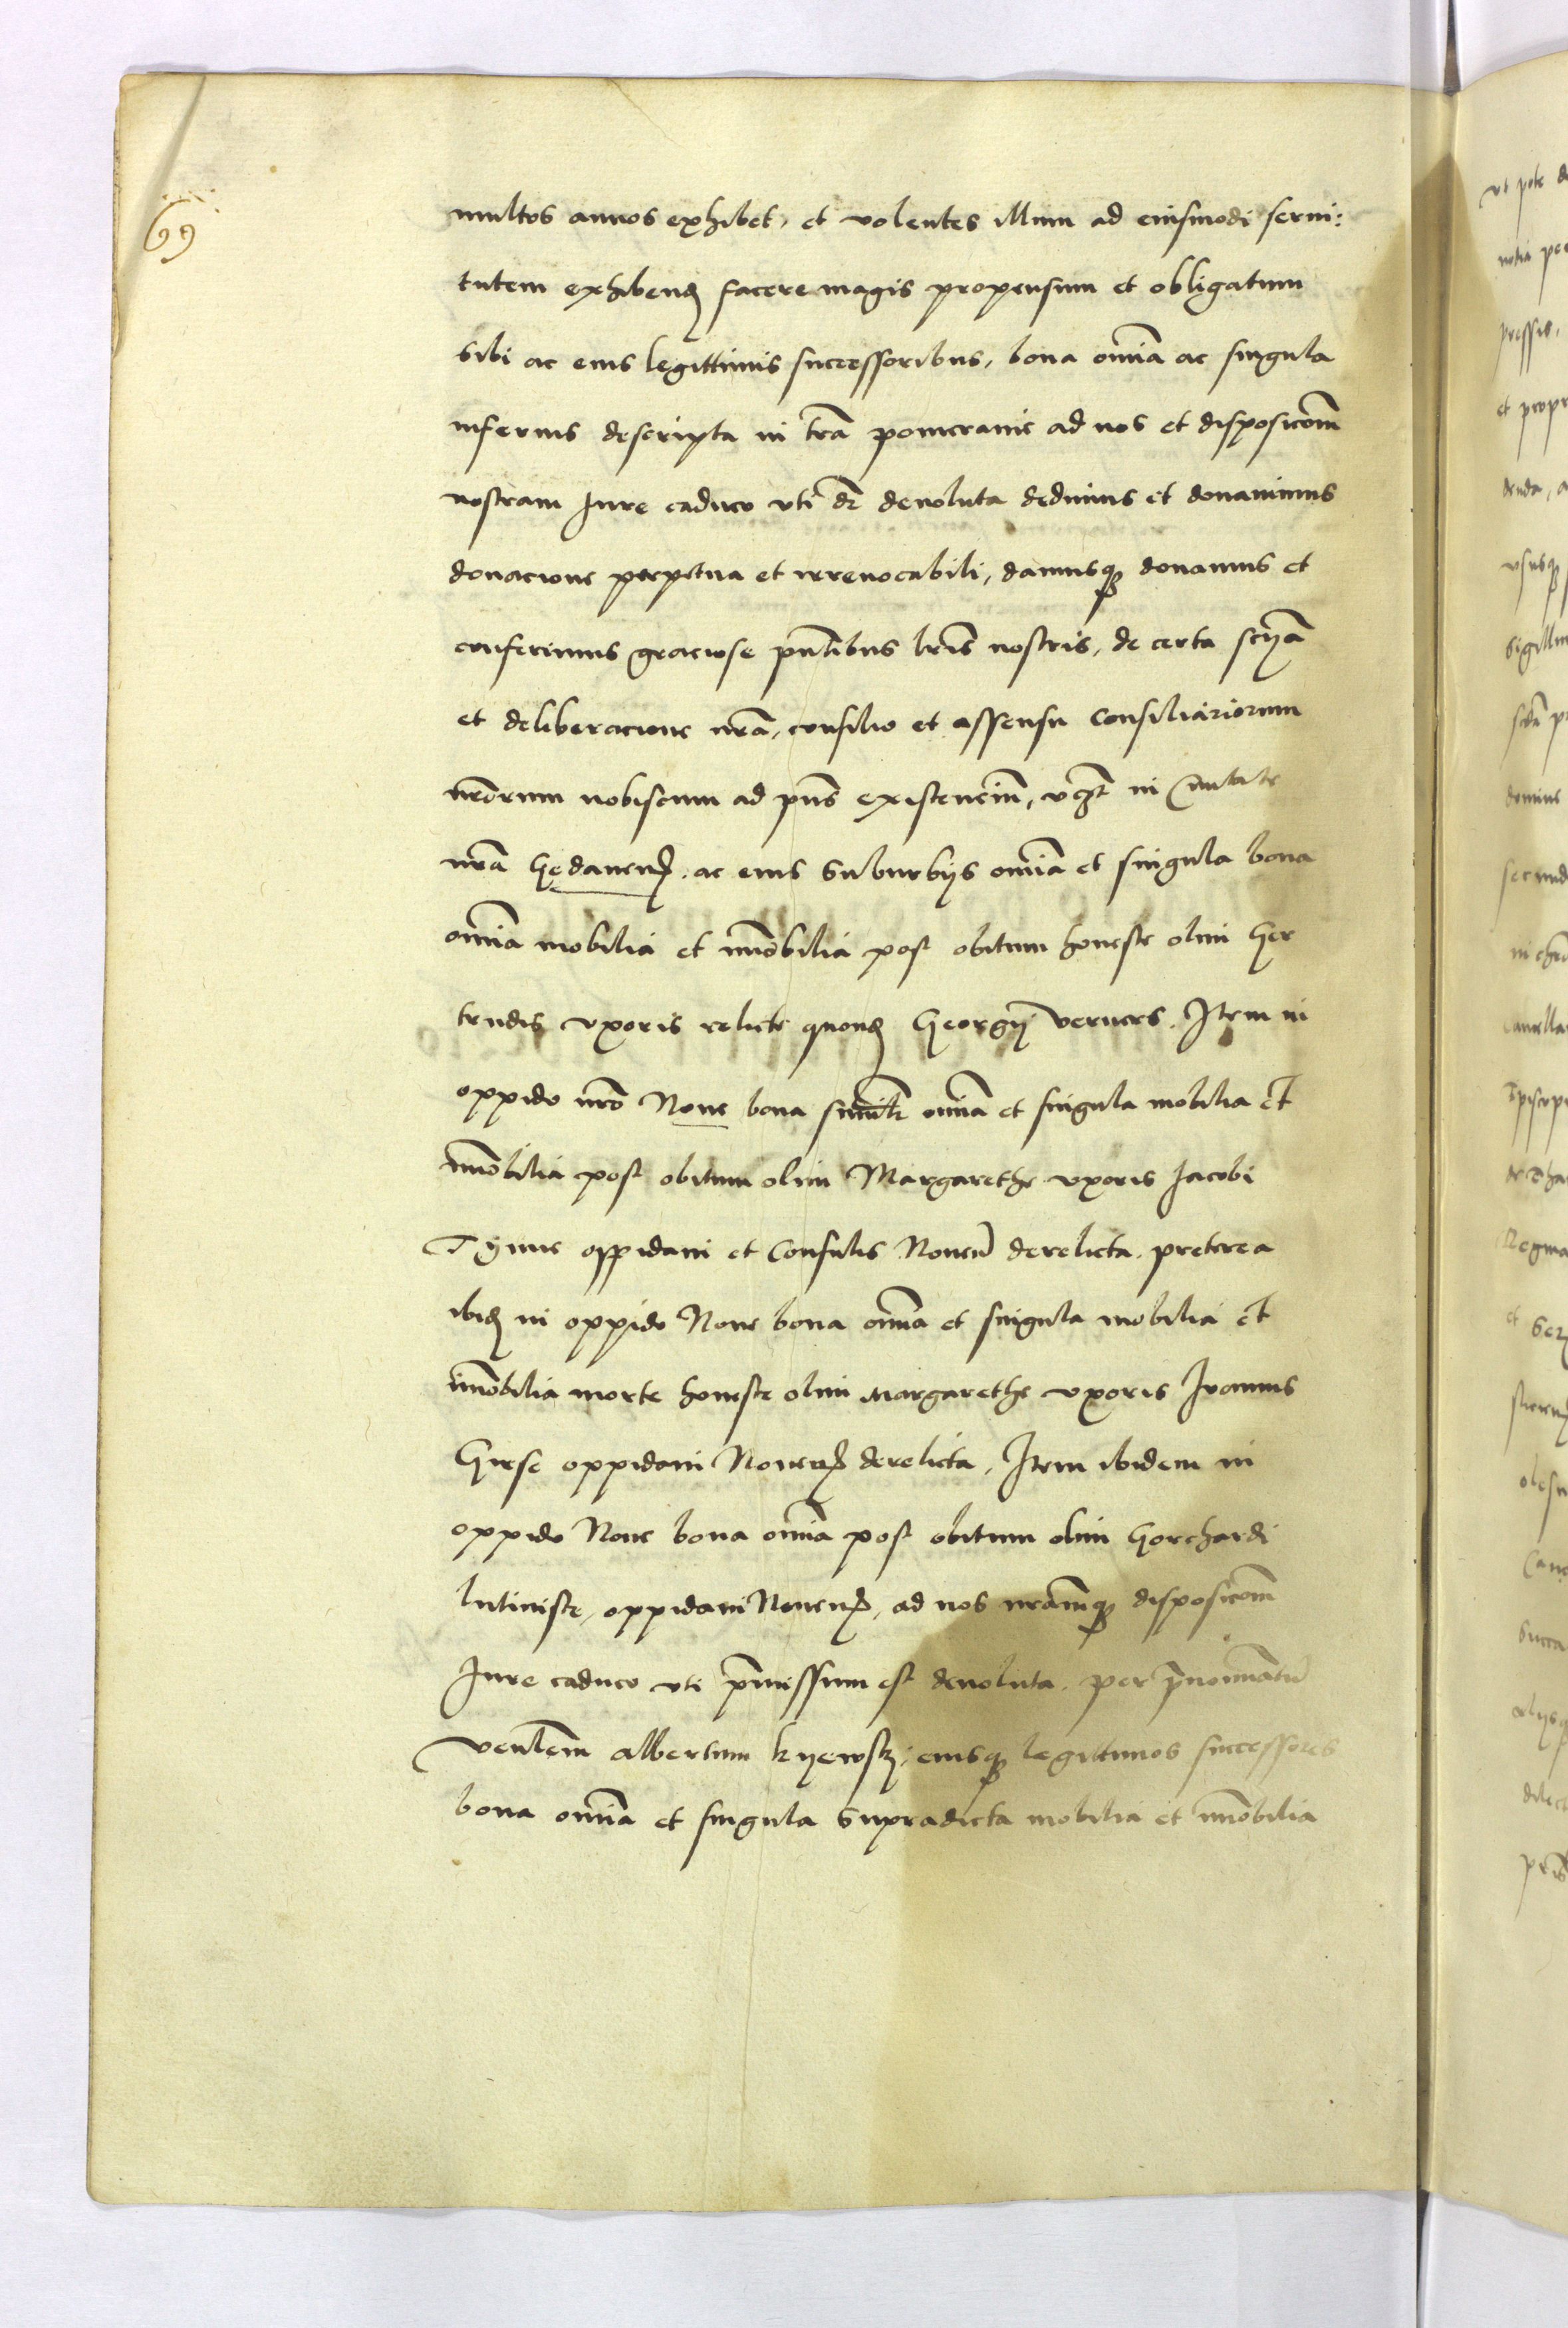 69
multos annos exhibet, et volentes illum ad eiusmodi serui:
tutem exhibend facere magis propensum et obligatum
sibi ac eius legittimis successoribus, bona om̄ia ac singula
inferius descripta in trā pomeranie ad nos et disposicōm
nostram Iure caduco vti dr̄ deuoluta dedimus et donauimus
donacione perpetua et irreuocabili, damusq donamus et
conferimus graciose pn̄tibus lrīs nostris, de certa scīya
et deliberacione nrā, consilio et assensu Consiliariorum
nrōrum nobiscum ad pn̄s existenciū, vcz̄ in Ciuitate
nrā Gędanen. ac eius Suburbijs om̄ia et singula bona
om̄ia mobilia et im̄obilia post obitum honeste olim Ger
trudis vxoris relicte quond Georgij Verners. Item in
oppido nrō None bona similr̄ om̄ia et singula mobilia et
im̄obilia post obitum olim Margarethe vxoris Iacobi
Tyme oppidani et Consulis Noneñ derelicta. preterea
ibid in oppido None bona om̄ia et singula mobilia et
im̄obilia morte honeste olim Margarethe vxoris Ioannis
Giese oppidani Nonen derelicta, Item ibidem in
oppido None bona om̄ia post obitum olim Gorchardi
lutiniste, oppidani Nonen, ad nos nrāmq disposicōm
Iure caduco vti p̄missum est deuoluta. per p̄nominātū
Venlem̄ Albertum kyewsky, eiusq legittimos successores
bona om̄ia et singula supradicta mobilia et im̄obilia